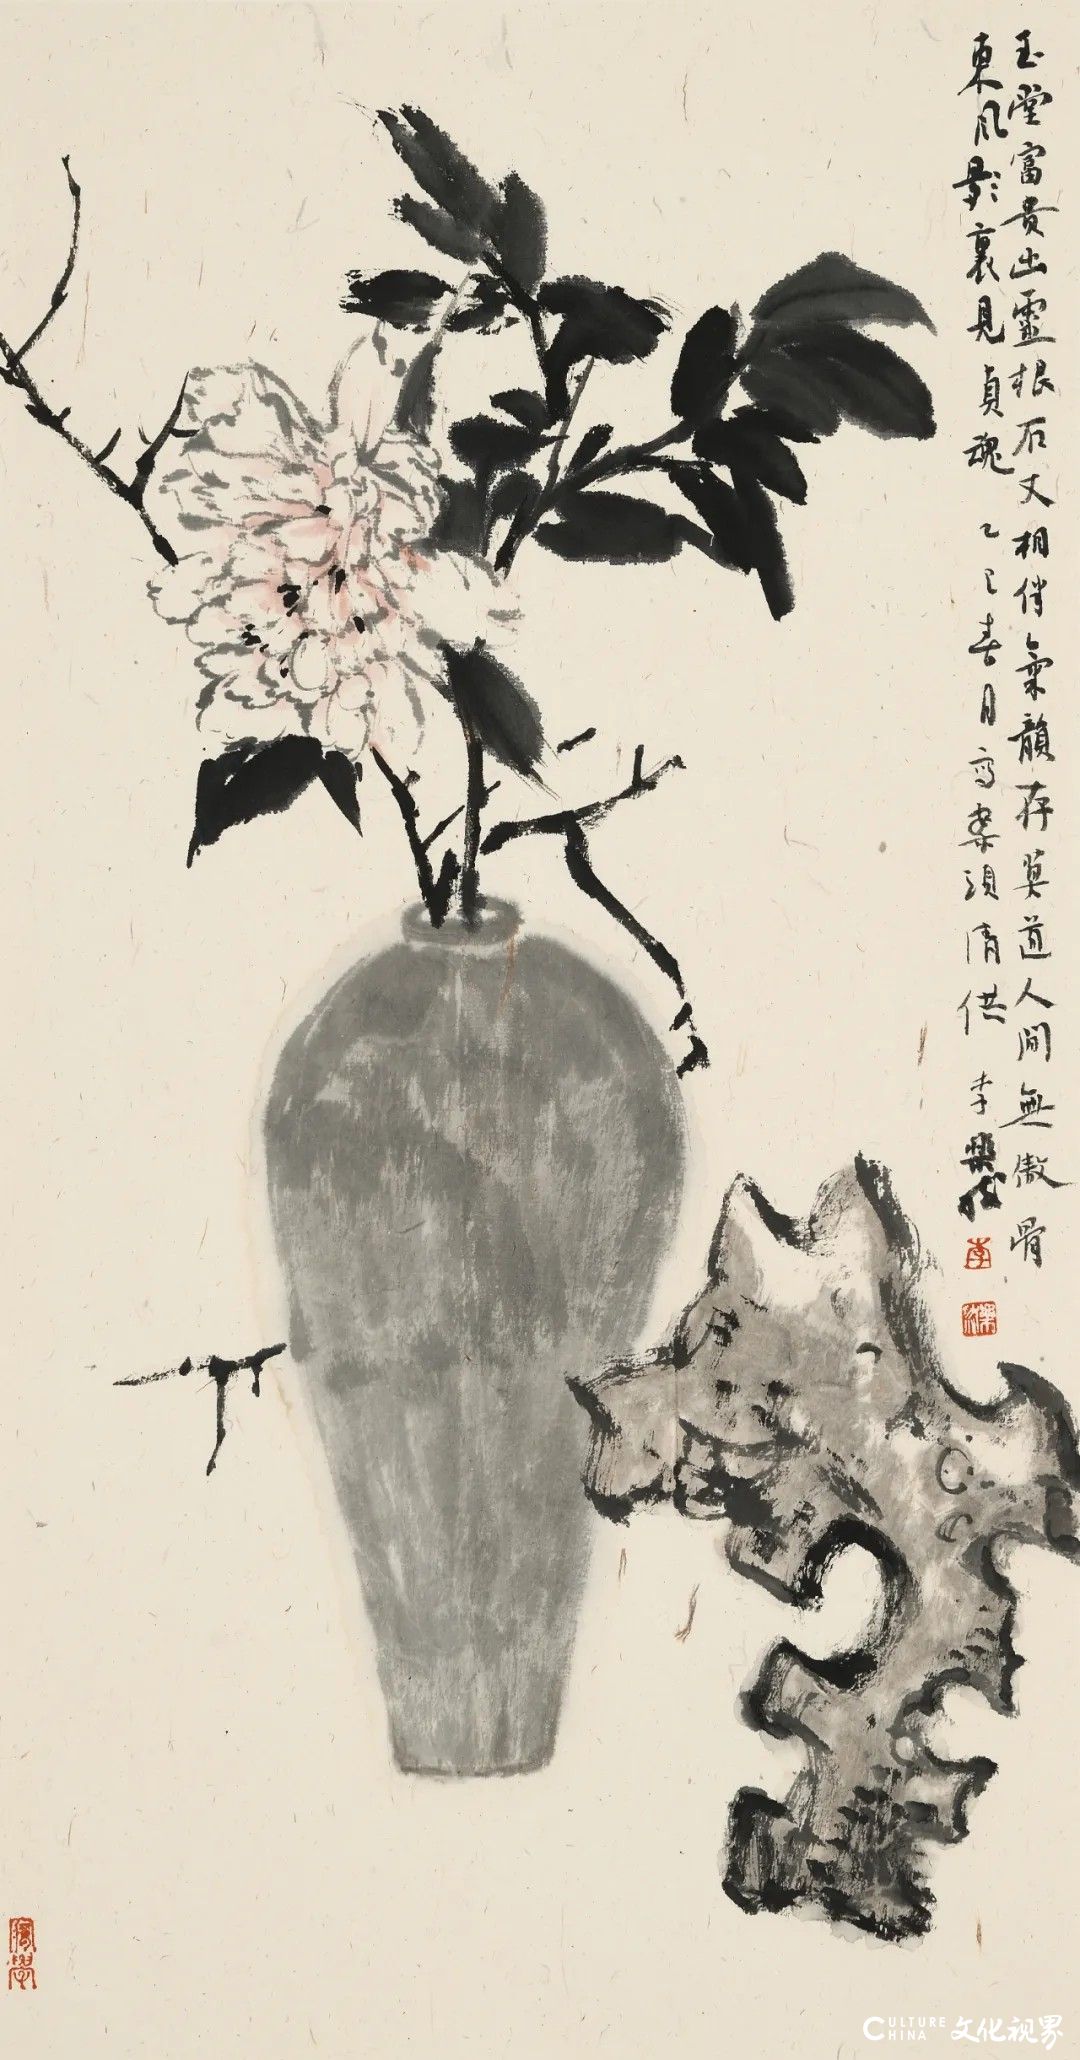 玉堂富貴出靈根石丈相偕氣韻存莫道人間無傲骨
東風影裏見貞魂 乙巳春月寫案頭清供 李
李
CULTURE CHINA 文化视界